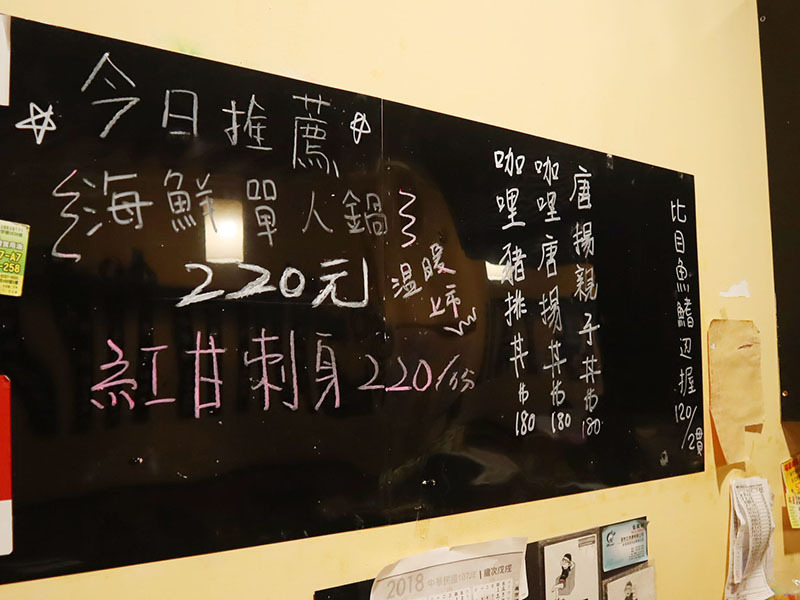 今日推薦
海鮮單人鍋
220元
溫暖
上市
紅甘刺身220/份
唐揚親子丼 $180
咖哩唐揚丼 $180
咖哩豬排丼 $180
比目魚鰭辺握 120/2貫
7-A7
-258
2018 中華民國107年 歲次戊戌